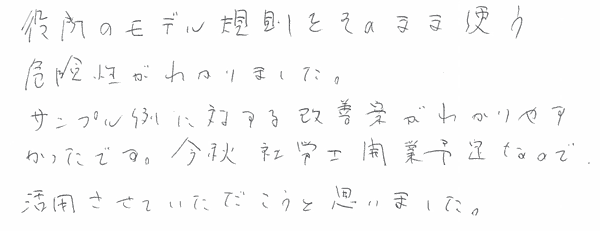 役所のモデル規則をそのまま使う
危険性がわかりました。
サンプル例に対する改善案がわかりやす
かったです。今秋 社労士開業予定なので、
活用させていただこうと思いました。